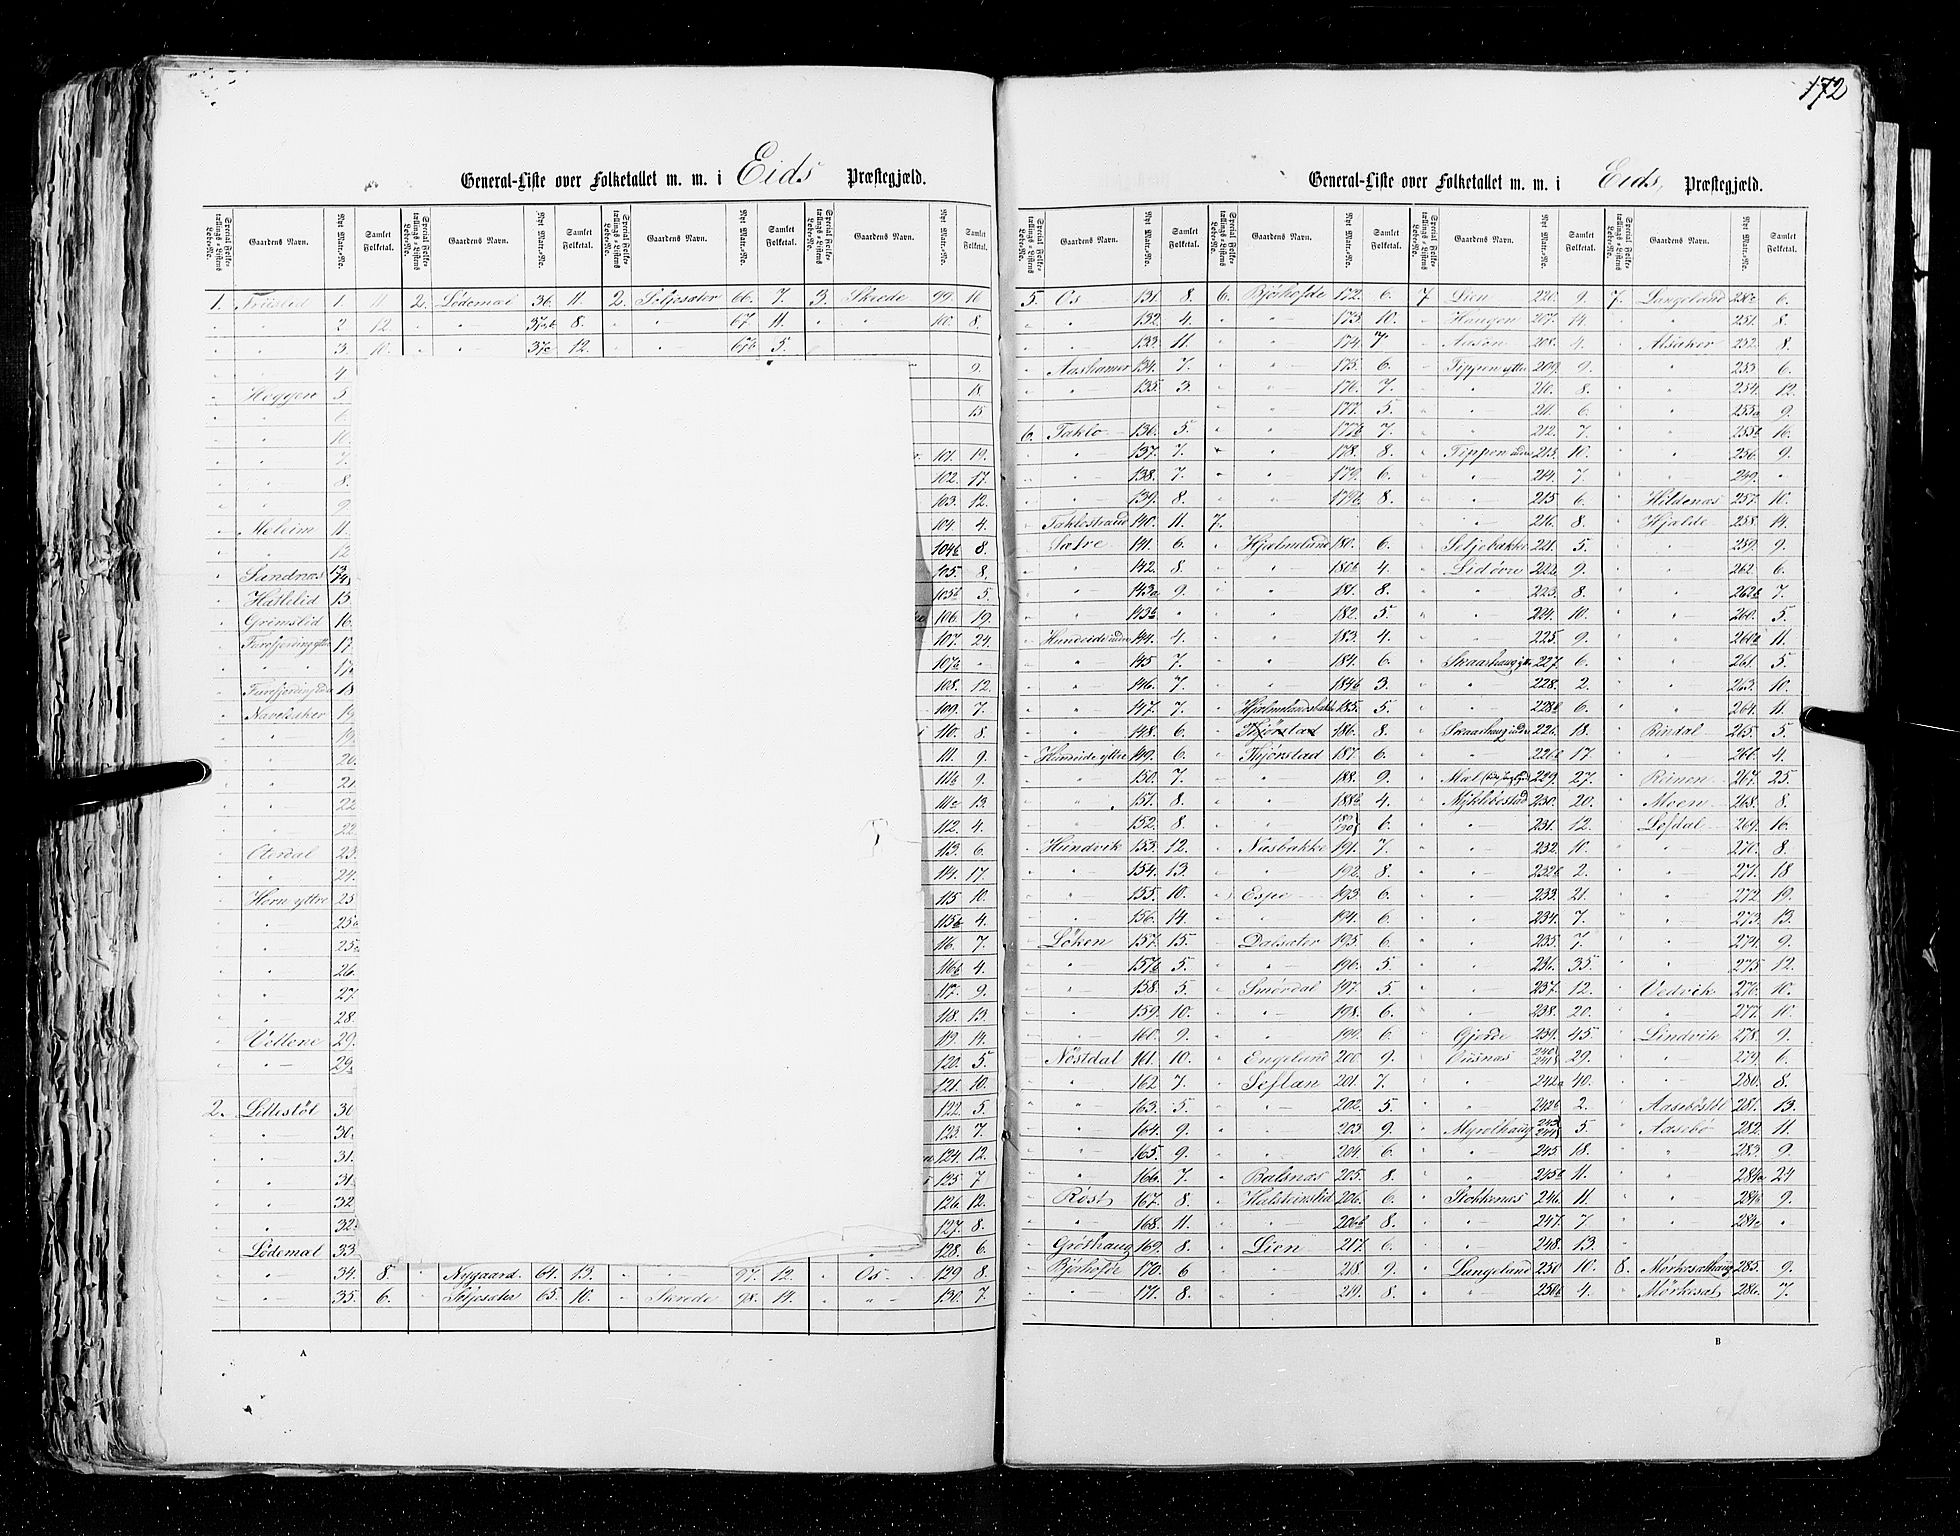 172
General-Liste over Folketallet m. m. i Eids Præstegjæld.
Special Folketællings-Listens Løbe-No. Gaardens Navn. Nyt Matr.-No. Samlet Folketal. Special Folketællings-Listens Løbe-No. Gaardens Navn. Nyt Matr.-No. Samlet Folketal. Special Folketællings-Listens Løbe-No. Gaardens Navn. Nyt Matr.-No. Samlet Folketal. Special Folketællings-Listens Løbe-No. Gaardens Navn. Nyt Matr.-No. Samlet Folketal.
1. 1. 11 2. Lødemæl 36. 11. 2. Seljesæter 66. 7. 3. Skrede 99. 10
" " 2 12. " " 37ab 8. " " 67. 11. " " 100. 8.
" " 3. 10. " " 37c 12. " " 67b 5.
" " 4. 9.
" Heggen 5 18.
" " 6. 15
" " 10.
" " 7. 101. 19.
" " 8. 102. 17.
" " 9. 103. 12.
" Meleim 11. 104. 4.
" " 12 104b 8.
" Sandnæs 13 14 105. 8.
" Hatlelid 15. 105b 5.
" Grimslid 16. 106. 19.
" 17. 107. 24.
" " 17b 107b "
" 18 108. 12.
" Navelsaker 19 109. 7.
" " 19 110. 8.
" " 20. 111. 9.
" " 21. 111b 9.
" " 22 111c 13.
" " 22. 112. 4.
" Oterdal 23. 113. 6.
" " 24. 114. 17.
" Horn ytre 25 115 10.
" " 25b 115b 4.
" " 25c 116. 7.
" " 26. 116b 4.
" " 27. 117. 9.
" " 28. 118. 13.
" Vellene 29. 119. 14.
" " 29b 120. 5.
121. 10.
2. Lillestøl 30. 122. 5.
" " 30. 123. 7.
" " 31. 124. 12.
" " 31. 125 7
" " 32 126. 12.
" " 32. 127. 8.
" Lødemæl 33 128. 6.
" " 34. 8. " Nygaard 64. 13. " " 97. 12. " Os 129 8.
" " 35. 6. " Seljesæter 65. 10. " Skrede 98. 14. " " 130. 7
A
General-Liste over Folketallet m. m. i Eids Præstegjæld.
Special Folketællings-Listens Løbe-No. Gaardens Navn. Nyt Matr.-No. Samlet Folketal. Special Folketællings-Listens Løbe-No. Gaardens Navn. Nyt Matr.-No. Samlet Folketal. Special Folketællings-Listens Løbe-No. Gaardens Navn. Nyt Matr.-No. Samlet Folketal. Special Folketællings-Listens Løbe-No. Gaardens Navn. Nyt Matr.-No. Samlet Folketal.
5. Os 131. 8. 6. Bjørhofde 172. 6. 7 Lien 220. 9. 7. Langeland 250c 6.
" " 132. 4. " " 173. 10. " Haugen 207. 14. " " 251. 8.
" " 133. 11. " " 174. 7 " Aasen 208. 4. " Alsaker 252. 8.
" Aashamer 134. 7. " " 175. 6. " Tippen ytre 209. 9. " " 253. 6.
" " 135. 3. " " 176. 7. " " 210. 8. " " 254. 12.
" " 177. 5. " " 211. 6. " " 255a 9.
6. Taklo 136. 5. " " 177b 7. " " 212. 7. " " 255b 16.
" " 137. 7. " " 178. 8. " Tippen indre 213. 10. " " 256. 9.
" " 138. 7. " " 179. 6. " " 214. 7. " " 249. "
" " 139. 8. " " 179b 8. " " 215 6. " Hildenæs 257. 10.
" Taklestrand 140. 11. 7. " " 216. 8. " Hjelde 258. 14.
" Sætre 141. 6. " Hjelmeland 180. 6. " Seljebakke 221. 5. " " 259. 9.
" " 142. 8. " " 180b 4. " Lid øvre 222. 9. " " 262. 6.
" " 143a 9. " " 181. 8. " " 223. 8. " " 262b 7.
" " 143b " " " 182. 5. " " 224. 10. " " 260. 5
" Hundeide indre 144. 4. " " 183. 4. " " 225. 9. " " 260b 11.
" " 145 7. " " 184. 6. " Skaarhaug ytre 227. 6. " " 261. 5
" " 146. 7. " " 184b 3. " " 228. 2. " " 263. 10.
" " 147. 7. " Hjelmelandsbakke 185. 5. " " 228b 6. " " 264. 11
" " 148. 6. " 186. 8. " Skaarhaug indre 226. 18. " Rindal 265. 5
" Hunneide ytre 149. 6. " Thjørstad 187. 6. " " 226b 17. " " 266. 4.
" " 150. 7. " " 188. 9. " Mæl 229. 27. " Reinen 267. 25.
" " 151. 8. " " 188b 4. " Myklebostad 230. 20. " Moen 268. 8.
" " 152. 8. " " 189 190 6. " " 231. 12. " Løfdal 269. 16.
" Hundvik 153. 12. " Næsbakke 191. 7. " " 232. 10. " " 270. 8.
" " 154. 13. " " 192. 8. " " 232b 2. " " 271. 18
" " 155. 10. " Espe 193. 6. " " 233. 21. " " 272. 19.
" " 156. 14. " " 194. 6. " " 234. 7. " " 273. 13.
" Løken 157. 15. " Dalsæter 195. 6. " " 235. 7. " " 274. 9.
" " 157b 5. " " 196. 5. " " 236. 35. " " 275 12.
" " 158. 5. " Smørdal 197. 5 " " 237. 12. " Vedvik 276. 10.
" " 159. 10. " " 198. 6. " " 238. 20. " " 277. 10.
" " 160. 9. " " 199. 6. " Gjerde 239. 45. " Lindvik 278. 9.
" Nøstdal 161. 10. " Engeland 200. 9. " Ousnæs 240 241 29. " " 279. 6.
" " 162 7. " Leflan 201. 7. " " 242a 40. " " 280. 8.
" " 163. 5. " " 202. 5 " " 242b 2. " Aasebøstøl 281. 13.
" " 164. 9. " " 203. 9. " Myrolhaug 243 244 5 " Aasebø 282. 11.
" " 165. 9. " " 204. 6. " " 245 18. " " 283. 9
" " 166. 7. " Balsnæs 205. 8. " " 245b 11. " " 284a 24
" Røst 167. 8. " Halsteinslid 206. 6 " Stokkenæs 246. 11 " " 284b 9.
" " 168. 11. " " 206b 8. " " 247. 7 " " 284c "
" Grøthaug 169. 8. " Lien 217. 6. " " 248. 13.
" Bjørhofde 170. 6 " " 218. 9. " Langeland 250 10. 8. Mørkesæthaug 285. 9.
" " 171. 8. " " 219. 8. " " 250b 4. " Mørkesæt 286. 7.
B